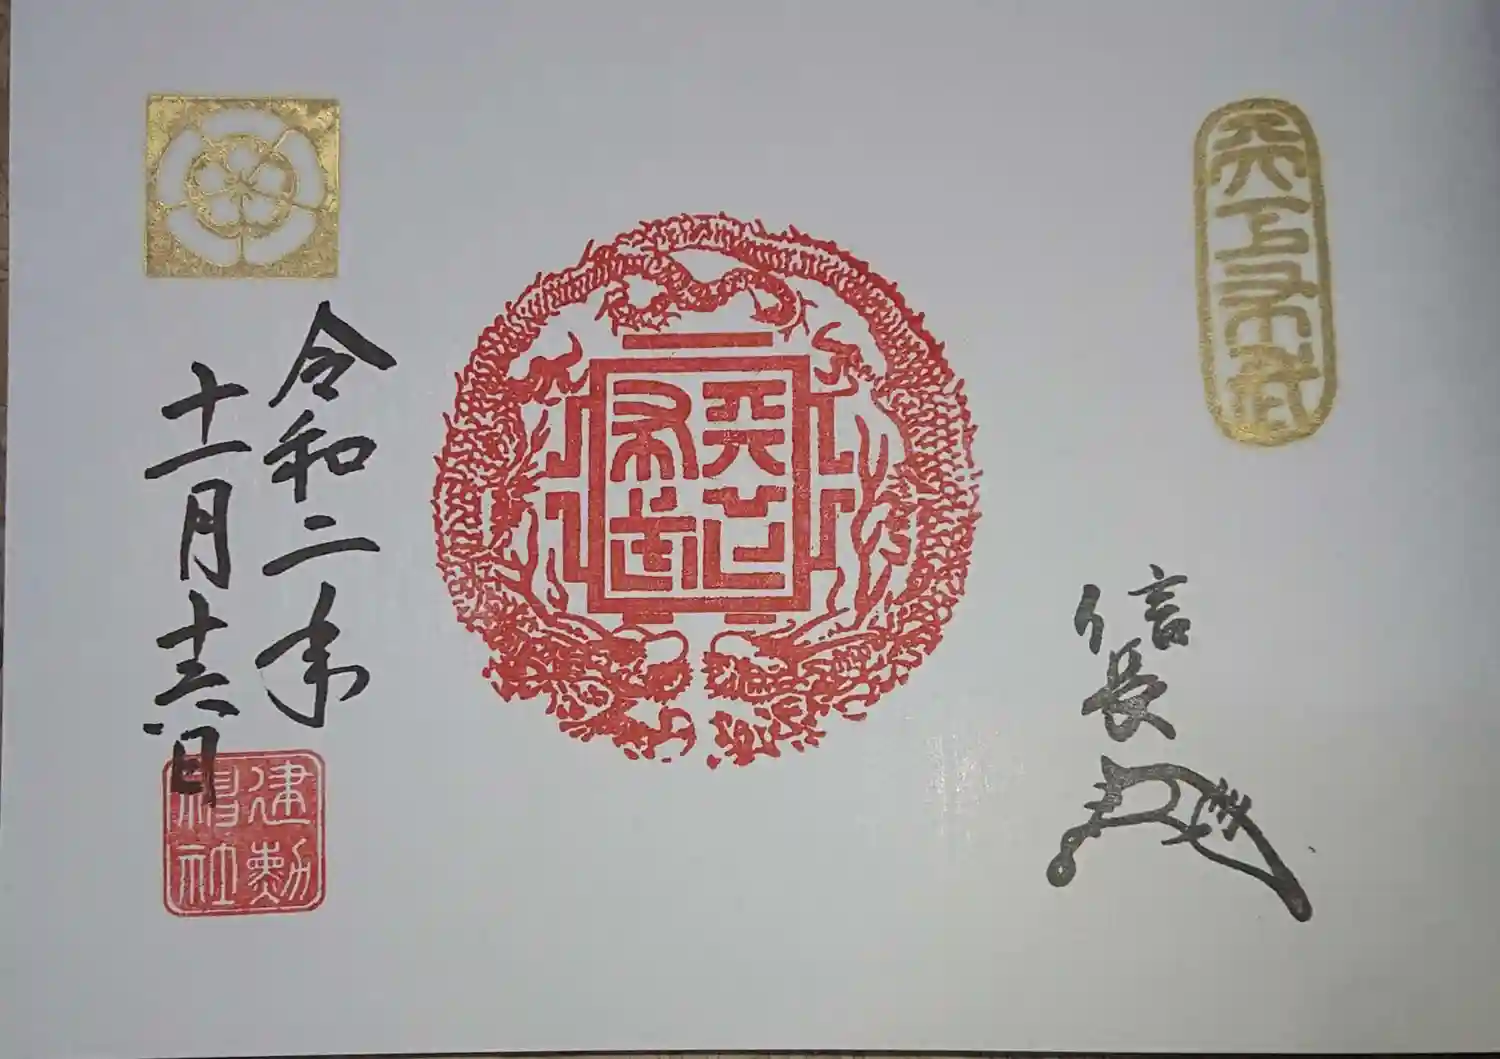 天下布武
信長
天下布武
令和二年
十一月十六日
建勲神社